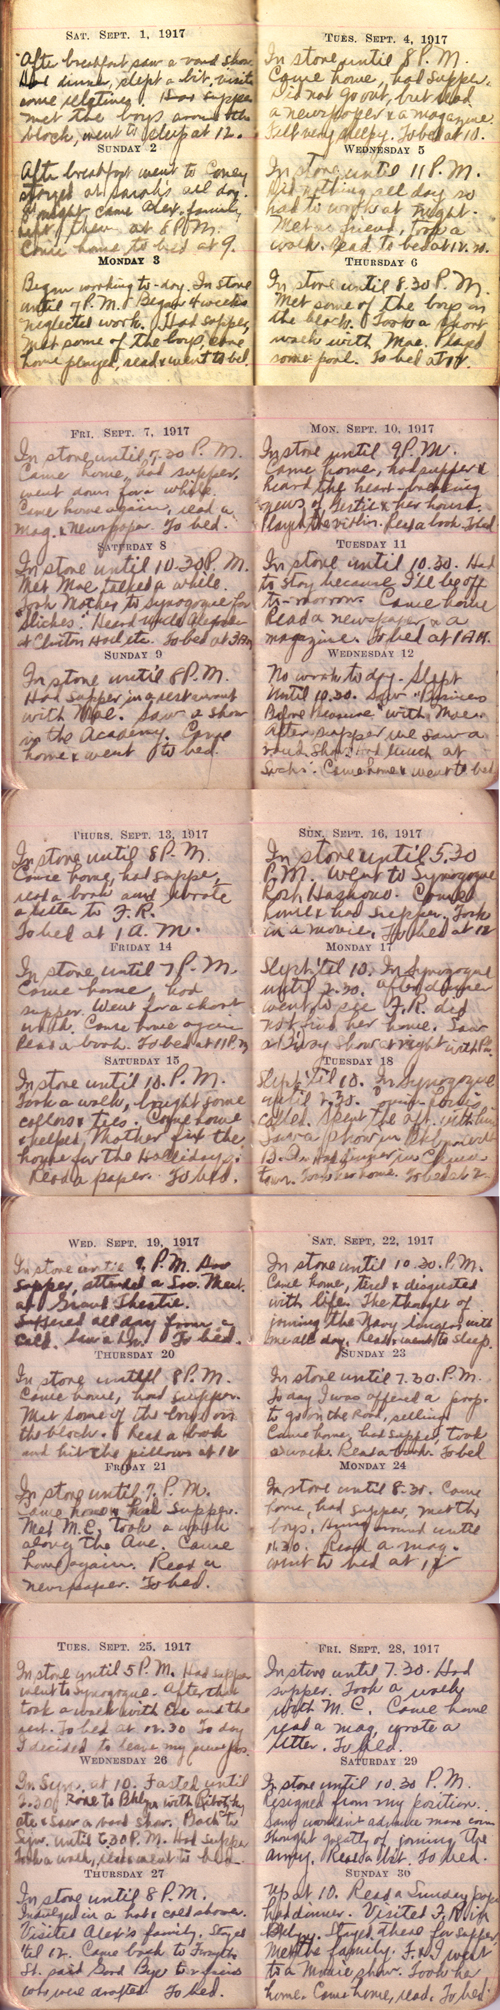 SAT. SEPT. 1, 1917
After breakfast saw a vaud. show.
Had dinner, slept a bit, visited
some relatives. Had supper
met the boys around the
block, went to sleep at 12.
SUNDAY 2
After breakfast went to Coney
stayed at Sarah's all day.
At night came Alex. family
left there at 8 P.M.
Came home to bed at 9.
MONDAY 3
Began working to-day. In store
until 7 P.M. Began 4 weeks
neglected work. Had supper,
met some of the boys, came
home played, read & went to bed.
TUES. SEPT. 4, 1917
In store until 8 P.M.
Came home, had supper.
Did not go out, but read
a newspaper & a magazine.
Felt very sleepy. To bed at 10.
WEDNESDAY 5
In store until 11 P.M.
Did nothing all day so
had to work at night.
Met a friend, took a
walk. Read to bed at 12.30.
THURSDAY 6
In store until 8.30 P.M.
Met some of the boys on
the block. Took a short
walk with Mae. Played
some pool. To bed at 12.
FRI. SEPT. 7, 1917
In store until 7.30 P.M.
Came home, had supper,
went down for a while.
Came home again, read a
mag. & newspaper. To bed.
SATURDAY 8
In store until 10.30 P.M.
Met Mae talked a while.
Took Mother to Synagogue for
Sliches. Heard
at Clinton Hall, etc. To bed at 3 AM
SUNDAY 9
In store until 8 P.M.
Had supper in a restaurant
with Mae. Saw a show
in the Academy. Came
home & went to bed.
MON. SEPT. 10, 1917
In store until 9 P.M.
Came home, had supper &
heard the heart-breaking
news of Gertie & her house.
Played the violin. Read a book. To bed
TUESDAY 11
In store until 10.30. Had
to stay because I'll be off
to-morrow. Came home
Read a newspaper & a
magazine. To bed at 1 A.M.
WEDNESDAY 12
No work to-day. Slept
until 10.30. Saw "Business
Before Pleasure" with Mae.
After supper we saw a
vaud. show. Had lunch at
Came home & went to bed
THURS. SEPT. 13, 1917
In store until 8 P.M.
Came home, had supper,
read a book and wrote
a letter to F.R.
To bed at 1 A.M.
FRIDAY 14
In store until 7 P.M.
Came home, had
supper. Went for a short
walk. Came home again
Read a book. To bed at 11 P.M.
SATURDAY 15
In store until 10 P.M.
Took a walk, bought some
collars & ties. Came home
& helped Mother fix the
house for the Holliday.
Read a paper. To bed.
SUN. SEPT. 16, 1917
In store until 5.30
P.M. Went to Synagogue
Rosh Hashono. Came
home & had supper. Took
in a movie. To bed at 12
MONDAY 17
Slept 'til 10. In Synagogue
until 2.30. After dinner
went to see F.R. did
not find her home. Saw
a show & night with
TUESDAY 18
Slept 'til 10. In Synagogue
until 2.30. Louis
called. Spent the aft. with him
Saw a show in Bklyn with
Had supper in China
town. Took her home. To bed at 2.
WED. SEPT. 19, 1917
In store until 9 P.M. Had
supper, attended a Soc. Meet.
at Grand Theatre.
Suffered all day from a
cold. To bed.
THURSDAY 20
In store until 8 P.M.
Came home, had supper.
Met some of the boys on
the block. Read a book
and hit the pillows at 12
FRIDAY 21
In store until 7 P.M.
Came home & had supper.
Met M.C. took a walk
along the Ave. Came
home again. Read a
newspaper. To bed.
SAT. SEPT. 22, 1917
In store until 10.30 P.M.
Came home, tired & disgusted
with life. The thought of
joining the Navy lingers with
me all day. Read, went to sleep.
SUNDAY 23
In store until 7.30 P.M.
To day I was offered a prop.
to go on the Road, selling.
Came home, had supper, took
a walk. Read a book. To bed
MONDAY 24
In store until 8.30. Came
home, had supper, met the
boys. Hung around until
11.30. Read a mag.
went to bed at 12
TUES. SEPT. 25, 1917
In store until 5 P.M. Had supper
went to Synagogue. After that
took a walk with Eve and the
rest. To bed at 12.30 To day
I decided to leave my
WEDNESDAY 26
In Syn. at 10. Fasted until
6.30. Rode to Bklyn with
etc & saw a vaud show. Back to
Syn. until 6.30 P.M. Had supper
Took a walk, read & went to bed.
THURSDAY 27
In store until 8 P.M.
Indulged in a hot & cold shower.
Visited Alex's family. Stayed
'til 12. Came back to Forsyth
St. said Good Bye to friends
who were drafted. To bed.
FRI. SEPT. 28, 1917
In store until 7.30. Had
supper. Took a walk
with M.C. Came home
read a mag, wrote a
letter. To bed.
SATURDAY 29
In store until 10.30 P.M.
Resigned from my position.
Sam wouldn't advance more
Thought greatly of joining the
army. Read a bit. To bed.
SUNDAY 30
Up at 10. Read a Sunday paper
had dinner. Visited F.R. in
Bklyn. Stayed there for supper,
Met the family. F. & I went
to a Movie show. Took her
home. Came home, read. To bed.